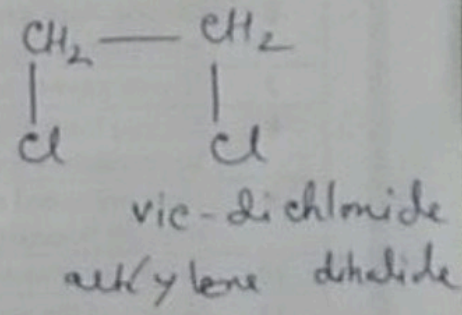 CH2 — CH2
| |
Cl Cl
vic-dichloride
alkylene dihalide